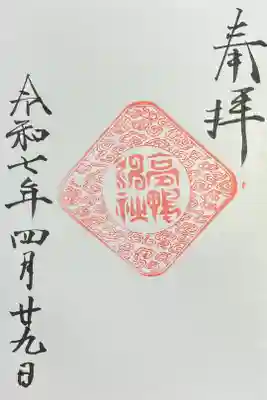 奉拝
高鴨
神社
令和七年四月廿九日